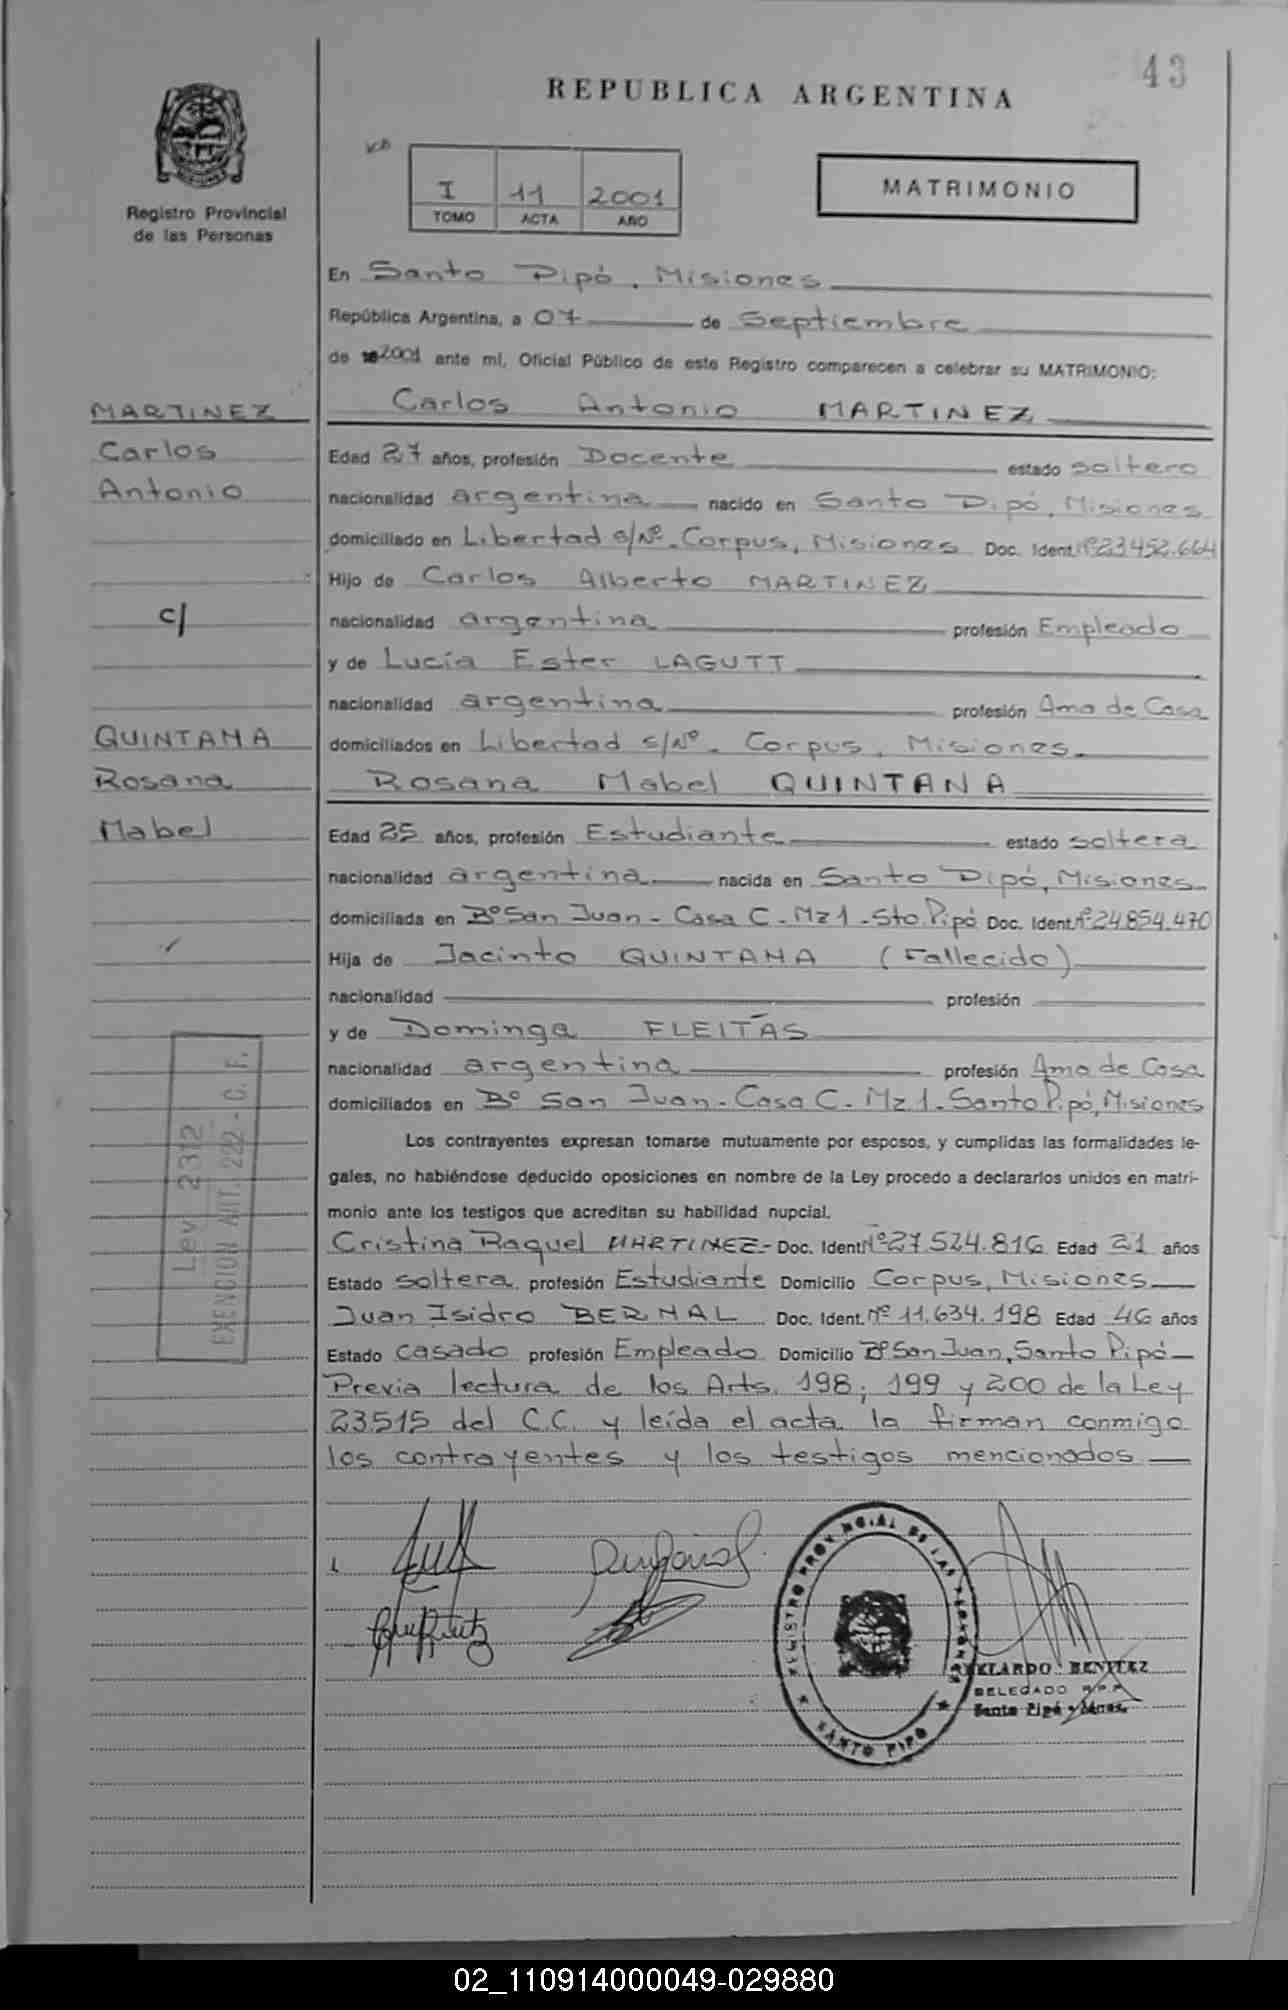 43
REPUBLICA ARGENTINA
Registro Provincial
de las Personas
I 11 2001
TOMO ACTA AÑO
MATRIMONIO
En Santo Pipó, Misiones
República Argentina, a 07 de Septiembre
de 2001 ante mí, Oficial Público de este Registro comparecen a celebrar su MATRIMONIO:
MARTINEZ
Carlos
Antonio
c/
QUINTANA
Rosana
Mabel
Carlos Antonio MARTINEZ
Edad 27 años, profesión Docente estado soltero
nacionalidad argentina nacido en Santo Pipó, Misiones
domiciliado en Libertad s/Nº. Corpus, Misiones Doc. Ident. Nº 23.452.664
Hijo de Carlos Alberto MARTINEZ
nacionalidad argentina profesión Empleado
y de Lucía Ester LAGUTT
nacionalidad argentina profesión Ama de Casa
domiciliados en Libertad s/Nº. Corpus, Misiones.
Rosana Mabel QUINTANA
Edad 25 años, profesión Estudiante estado soltera
nacionalidad argentina nacida en Santo Pipó, Misiones.
domiciliada en Bº San Juan - Casa C - Mz 1 - Sto. Pipó Doc. Ident. Nº 24.854.470
Hija de Jacinto QUINTANA (Fallecido)
nacionalidad profesión
y de Dominga FLEITAS
nacionalidad argentina profesión Ama de Casa
domiciliados en Bº San Juan - Casa C - Mz 1 - Santo Pipó, Misiones
Los contrayentes expresan tomarse mutuamente por esposos, y cumplidas las formalidades le-
gales, no habiéndose deducido oposiciones en nombre de la Ley procedo a declararlos unidos en matri-
monio ante los testigos que acreditan su habilidad nupcial.
Cristina Raquel MARTINEZ - Doc. Ident. Nº 27.524.816 Edad 21 años
Estado soltera profesión Estudiante Domicilio Corpus, Misiones
Juan Isidro BERNAL Doc. Ident. Nº 11.634.198 Edad 46 años
Estado casado profesión Empleado Domicilio Bº San Juan, Santo Pipó
Previa lectura de los Arts. 198; 199 y 200 de la Ley
23515 del C.C. y leída el acta la firman conmigo
los contrayentes y los testigos mencionados
Ley 2312
EXENCION ART. 222 - C. F.
REGISTRO PROVINCIAL DE LAS PERSONAS
SANTO PIPO
BENITEZ
DELEGADO R.P.P.
Santo Pipó - Mnes.
02_110914000049-029880